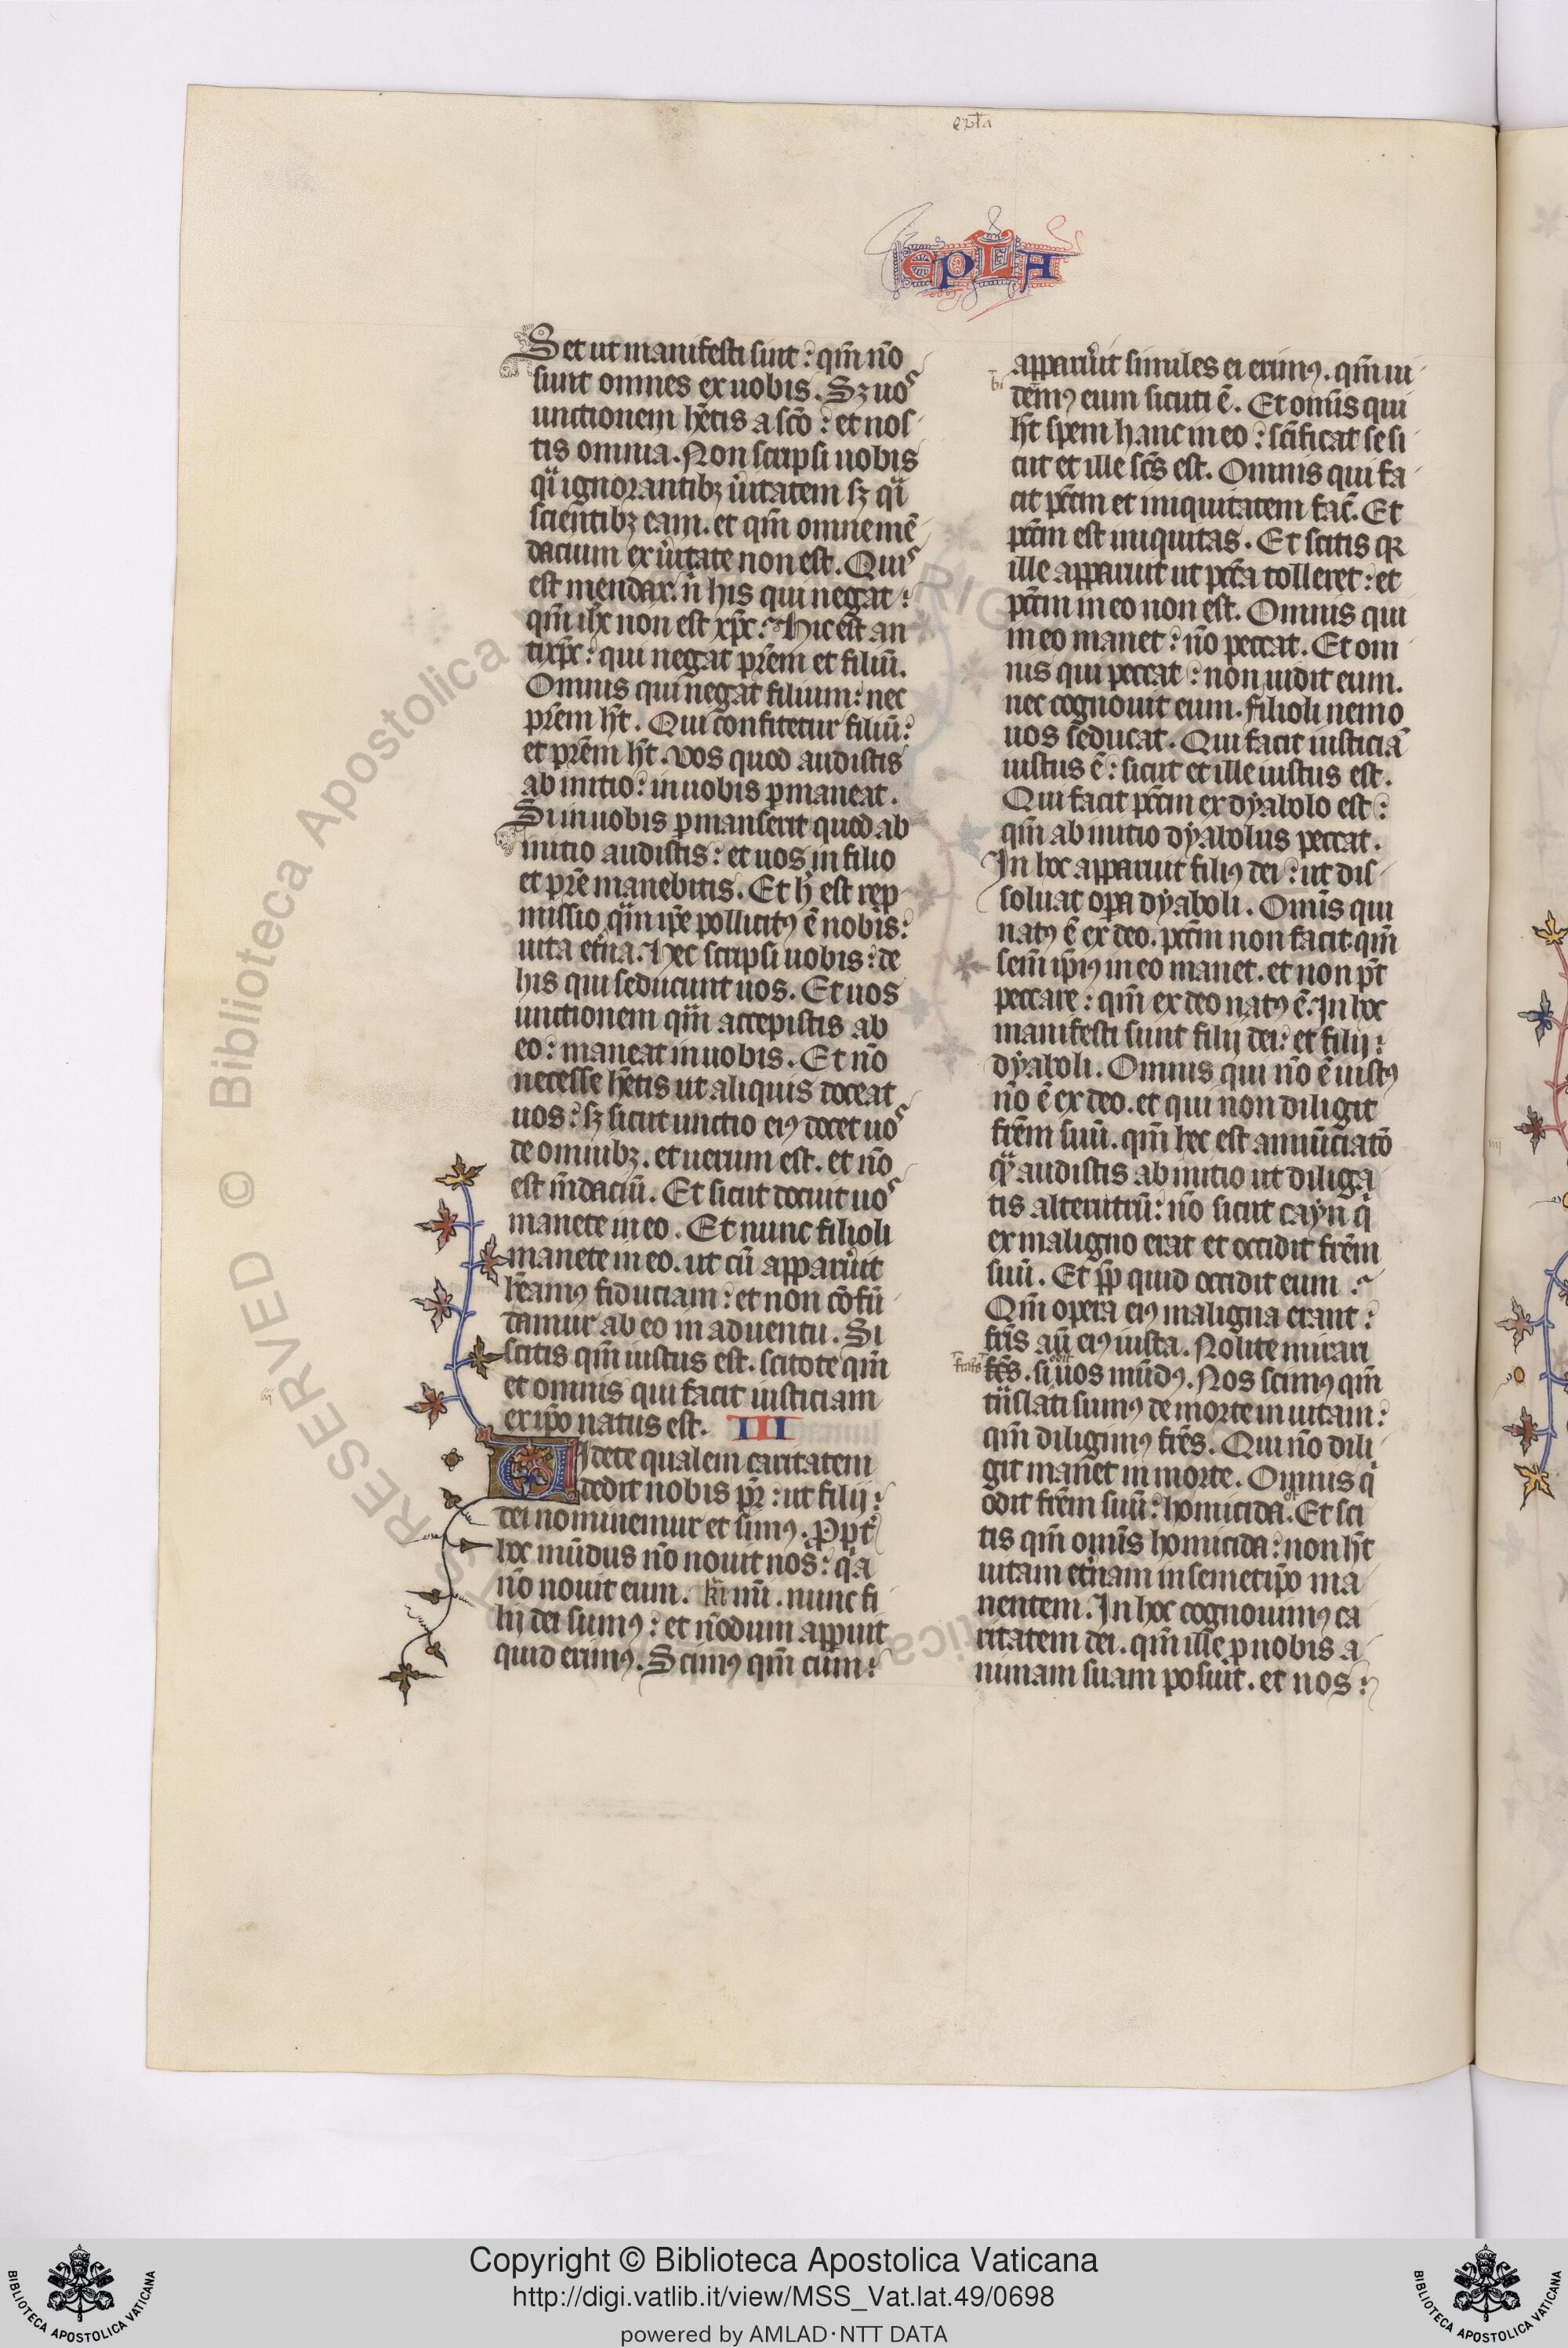 epl̃a
EPLA
Set ut manifesti sint : qm̃ nõ
sunt omnes ex uobis . Sꝫ uoˢ
unctionem hẽtis a sc̃o : et nos
tis omnia . Non scripsi uobis
qͣi ignorantibꝫ ùitatem sꝫ qͣi
scientibꝫ eam . et qm̃ omne mẽ
dacium ex ùitate non est . Quiˢ
est mendax . ñ his qui negat :
qm̃ ihc̃ non est xp̃c : Hic est an
tixp̃c : qui negat pr̃em et filiũ .
Omnis qui negat filium : nec
pr̃em ht̃ . Qui confitetur filiũ :
et pr̃em ht̃ . vos quod audistis
ab initio : in uobis ꝑmaneat .
Si in uobis ꝑmanserit quod ab
initio audistis : et uos in filio
et pr̃e manebitis . Et h̾ est rep
missio qm̃ ip̃e pollicitꝰ ẽ nobis :
uita et̾na . Hec scripsi uobis : de
his qui seducunt uos . Et uos
unctionem qm̃ accepistis ab
eo : maneat in uobis . Et nõ
necesse hẽtis ut aliquis doceat
uos : sꝫ sicut unctio eiꝰ docet uoˢ
de omnibꝫ . et uerum est . et nõ
est m̃daciũ . Et sicut docuit uoˢ
manete in eo . Et nunc filioli
manete in eo . ut cũ apparu̾it
hẽamꝰ fiduciam : et non cõfũ
damur ab eo in aduentu . Si
scitis qm̃ iustus est . scitote qm̃
et omnis qui facit iusticiam
ex ip̃o natus est . III
Uidete qualem caritatem
dedit nobis pr̃ : ut filij :
dei nominemur et simꝰ . Ꝓpt̾
hoc mũdus nõ nouit nos : qͥa
nõ nouit eum . kr̃i mi . nunc fi
lij dei sumꝰ : et nõdum appuit
quid erimꝰ . Scimꝰ qm̃ cum :
apparu̾it similes ei erimꝰ . qm̃ ui
bi
demꝰ eum sicuti ẽ . Et omĩs qui
ht̃ spem hanc in eo : sc̃ificat se si
cut et ille sc̃s est . Omnis qui fa
cit pcc̃m et iniquitatem fac̃ . Et
pcc̃m est iniquitas . Et scitis qꝛ
ille apparuit ut pcc̃a tolleret : et
pcc̃m in eo non est . Omnis qui
in eo manet : nõ peccat . Et om
nis qui peccat : non uidit eum .
nec cognouit eum . filioli nemo
uos seducat . Qui facit iusticiã
iustus ẽ : sicut et ille iustus est .
Qui facit pcc̃m ex dyabolo est :
qm̃ ab initio dyabolus peccat .
In hoc apparuit filiꝰ dei : ut dis
soluat oꝑa dyaboli . Omĩs qui
natꝰ ẽ ex deo . pcc̃m non facit . qm̃
sem̃ ip̃iꝰ in eo manet . et non pt̃
peccare : qm̃ ex deo natꝰ ẽ . In hoc
manifesti sunt filij dei : et filij :
dyaboli . Omnis qui nõ ẽ iustꝰ
nõ ẽ ex deo . et qui non diligit
fr̃em suũ . qm̃ hec est annũciatõ
qͣ audistis ab initio ut diliga
tis alterutrũ : nõ sicut cayn qͥ
ex maligno erat et occidit fr̃em
suũ . Et ꝓp quid occidit eum :
Qm̃ opera eiꝰ maligna erant :
fr̃is aũ eiꝰ iusta . Nolite mirari
fratres
fr̃es . si odit uos mũdꝰ . Nos scimꝰ qm̃
tñslati sumꝰ de morte in uitam :
qm̃ diligimꝰ fr̃es . Qui nõ dili
git manet in morte . Omnis qͥ
odit fr̃em suũ : homicida ẽ . Et sci
tis qm̃ omĩs homicida : non ht̃
uitam et̾nam in semetip̃o ma
nentem . In hoc cognouimꝰ ca
ritatem dei . qm̃ ille ꝓ nobis a
nimam suam posuit . et nos :
Copyright © Biblioteca Apostolica Vaticana
http://digi.vatlib.it/view/MSS_Vat.lat.49/0698
powered by AMLAD·NTT DATA
BIBLIOTECA APOSTOLICA VATICANA
BIBLIOTECA APOSTOLICA VATICANA